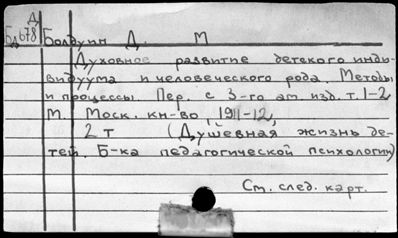 Д
Бд 678 Болдуин Д. М
Духовное развитие детского инди-
видуума и человеческого рода. Методы
и процессы. Пер. с 3-го ам. изд. т. 1-2
М. Моск. кн-во, 1911-12,
2 т (Душевная жизнь де-
тей. Б-ка педагогической психологии)
См. след. карт.